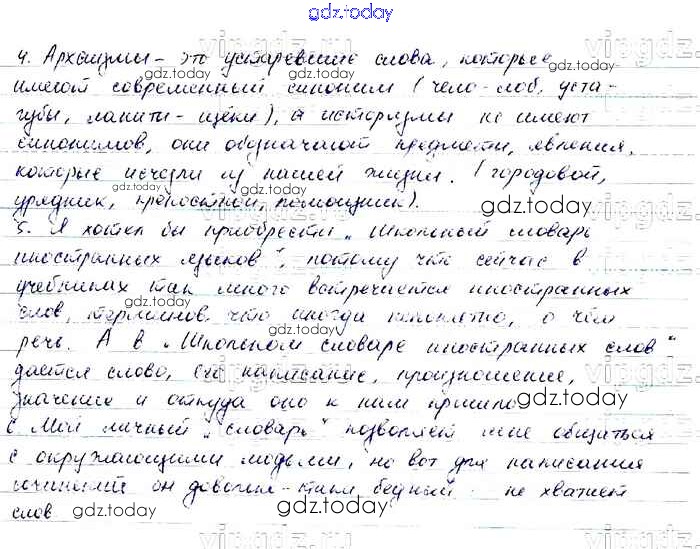 gdz.today
4. Архаизмы - это устаревшие слова, которые
имеют современный синоним (чело - лоб, уста -
губы, ланиты - щёки), а историзмы не имеют
синонимов, они обозначают предметы, явления,
которые исчезли из нашей жизни. (городовой,
урядник, крепостной, помощник).
5. Я хотел бы приобрести „Школьный словарь
иностранных языков", потому что сейчас в
учебниках так много встречается иностранных
слов, терминов, что иногда непонятно, о чём
речь. А в „Школьном словаре иностранных слов"
даётся слово, его написание, произношение,
значение и откуда оно к нам пришло
6 Мой личный „словарь" позволяет мне общаться
с окружающими людьми, но вот для написания
сочинений он довольно-таки бедный - не хватает
слов